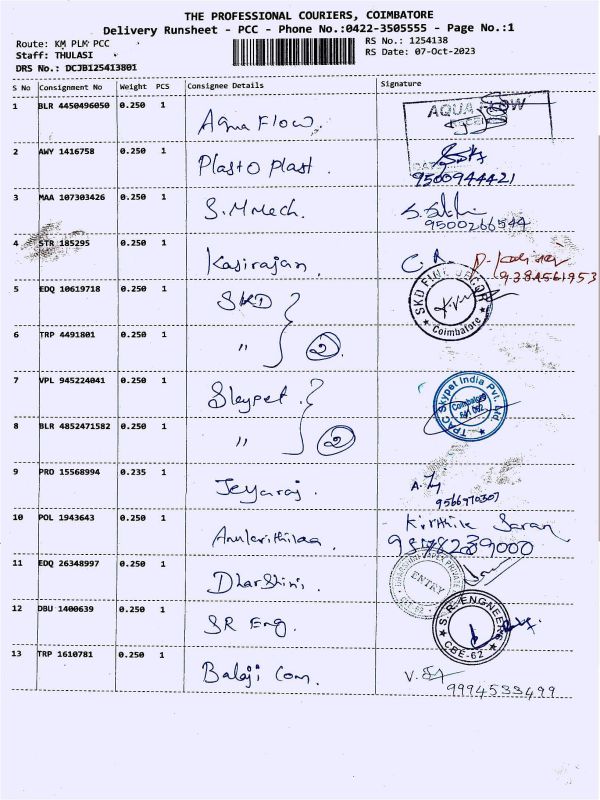 THE PROFESSIONAL COURIERS, COIMBATORE
Delivery Runsheet - PCC - Phone No.:0422-3505555 - Page No.:1
Route: KM PLK PCC
Staff: THULASI
DRS No.: DCJB125413801
RS No.: 1254138
RS Date: 07-Oct-2023
S No Consignment No Weight PCS Consignee Details Signature
1 BLR 4450496050 0.250 1 Aqua Flow. AQUA FLOW
2 AWY 1416758 0.250 1 Plasto Plast. 9500944421
3 MAA 107303426 0.250 1 S.M Mech. 9500266544
4 STR 185295 0.250 1 Kasirajan. 9384561953
5 EDQ 10619718 0.250 1 SKD SKD FINE DECOR Coimbatore
6 TRP 4491801 0.250 1 " 2
7 VPL 945224041 0.250 1 Skypet. TPAC Skypet India Pvt. Ltd Coimbatore
8 BLR 4852471582 0.250 1 " 2
9 PRO 15568994 0.235 1 Jeyaraj. 9566970307
10 POL 1943643 0.250 1 Kirthik Saran
11 EDQ 26348997 0.250 1 Dharshini. ENTRY
12 DBU 1400639 0.250 1 SR Eng. S.R. ENGNEERS CBE-62
13 TRP 1610781 0.250 1 Balaji Com. 9994533499